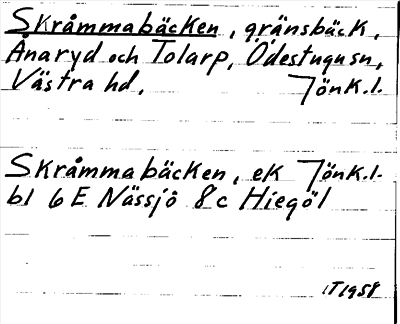 Skråmmabäcken, gränsbäck,
Ånaryd och Tolarp, Ödestugusn,
Västra hd, Jönk.l.
Skråmmabäcken, ek Jönk.l.
bl 6 E Nässjö 8c Hiegöl
IT 1958